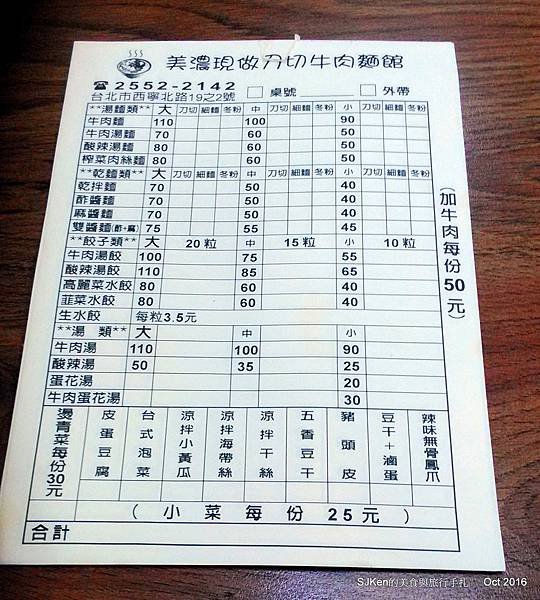 美濃現做刀切牛肉麵館
☎2552-2142 □桌號______ □外帶
台北市西寧北路19之2號
**湯麵類** 大 刀切 細麵 冬粉 中 刀切 細麵 冬粉 小 刀切 細麵 冬粉
牛肉麵 110 100 90
牛肉湯麵 70 60 50
酸辣湯麵 80 60 50
榨菜肉絲麵 80 60 50
**乾麵類** 大 刀切 細麵 冬粉 中 刀切 細麵 冬粉 小 刀切 細麵 冬粉
乾拌麵 70 50 40
酢醬麵 70 50 40
麻醬麵 70 50 40
雙醬麵(酢+麻) 75 55 45
**餃子類** 大 20粒 中 15粒 小 10粒
牛肉湯餃 100 75 55
酸辣湯餃 110 85 65
高麗菜水餃 80 60 40
韮菜水餃 80 60 40
生水餃 每粒3.5元
**湯 類** 大 中 小
牛肉湯 110 100 90
酸辣湯 50 35 25
蛋花湯 20
牛肉蛋花湯 30
(加牛肉每份50元)
燙青菜每份30元
皮蛋豆腐
台式泡菜
涼拌小黃瓜
涼拌海帶絲
涼拌干絲
五香豆干
豬頭皮
豆干+滷蛋
辣味無骨鳳爪
(小菜每份25元)
合計
SJKen的美食與旅行手札 Oct 2016